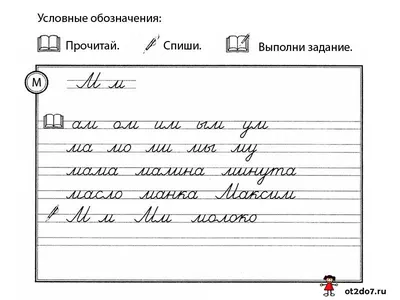 Условные обозначения:
Прочитай. Спиши. Выполни задание.
М М м
ам ом им ым ум
ма мо ми мы му
мама малина минута
масло манка Максим
М м Мм молоко
ot2do7.ru